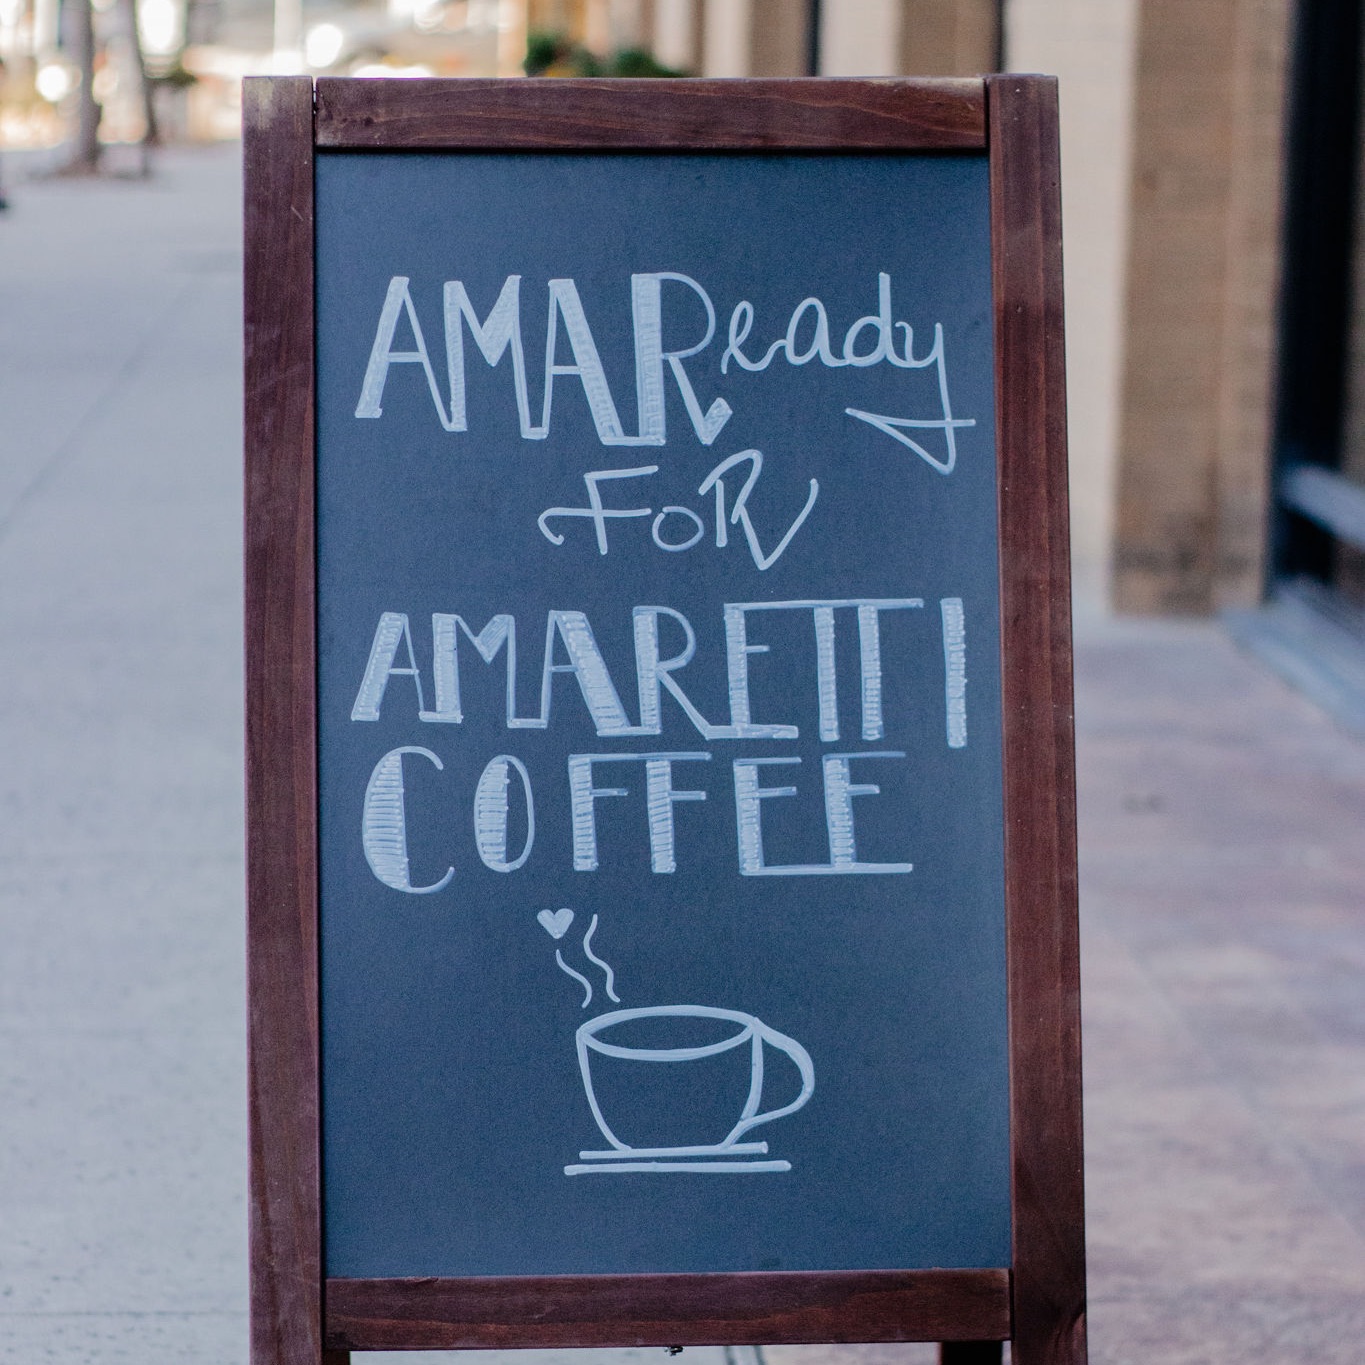 AMAReady
FoR
AMARETTI
COFFEE